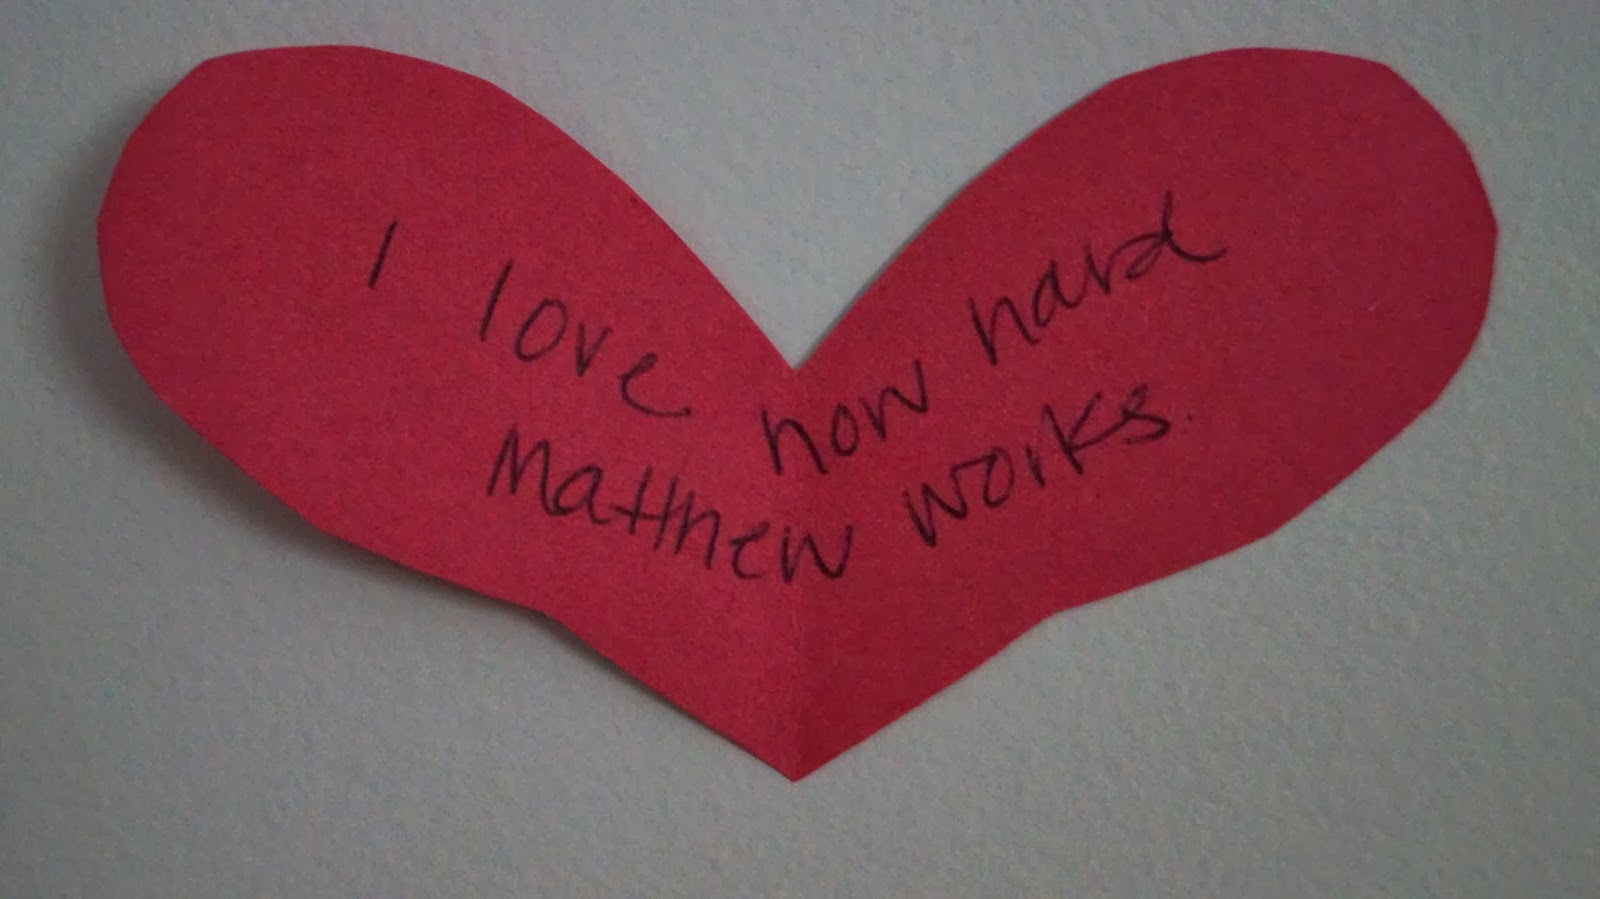 I love how hard
Matthew works.